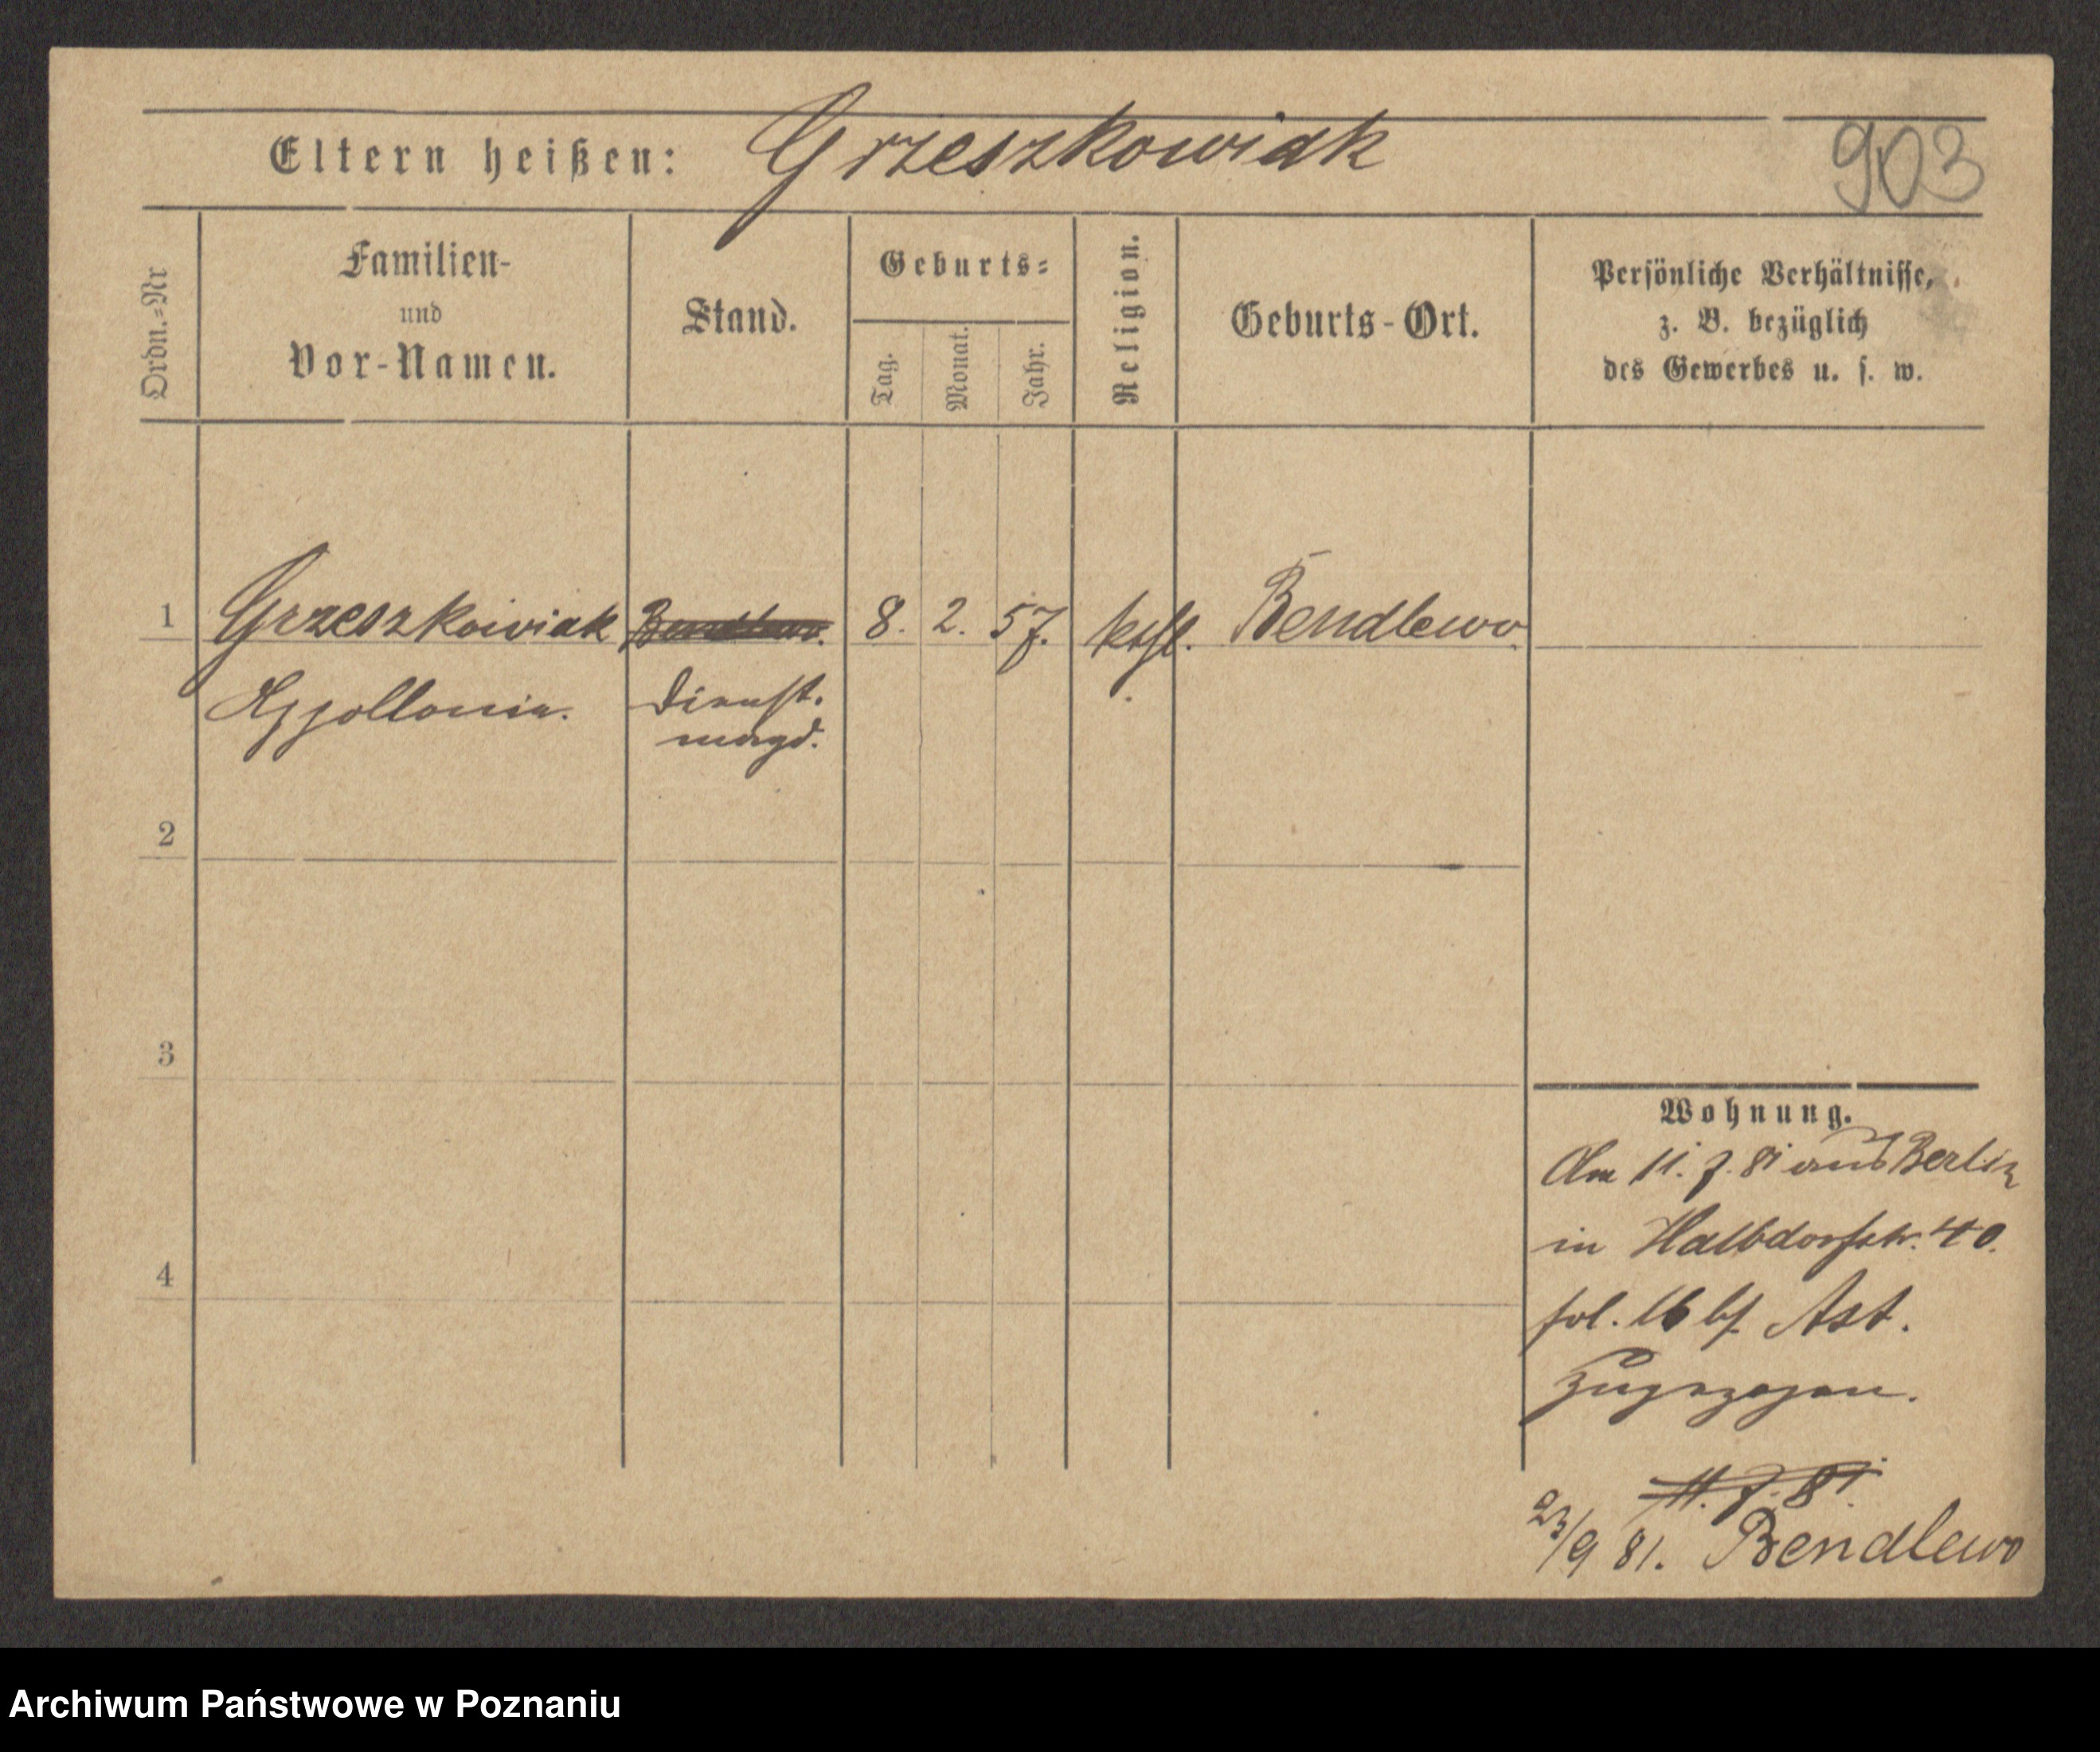 Eltern heißen: Grzeszkowiak
903
Ordn.=Nr
Familien-
und
Vor-Namen.
Stand.
Geburts=
Tag.
Monat.
Jahr.
Religion.
Geburts-Ort.
Persönliche Verhältnisse,
z. B. bezüglich
des Gewerbes u. s. w.
1 Grzeszkowiak Bendlewo. 8. 2. 57. kath. Bendlewo.
Appollonia. Dienst-
magd.
2
3
4
Wohnung.
Am 11. 7. 81 aus Berlin
in Halbdorfstr. 40.
fol. 16 bf. Ast.
zugezogen.
11. 7. 81.
23/9 81. Bendlewo
Archiwum Państwowe w Poznaniu